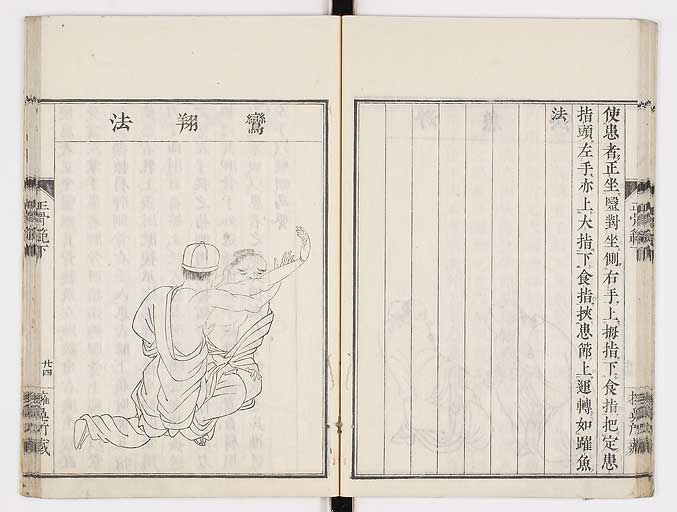 使患者正坐醫對坐側右手上拇指下食指把定患
指頭左手亦上大指下食指挾患節上運轉如躍魚
法
鸞翔法
正骨範下
廿四